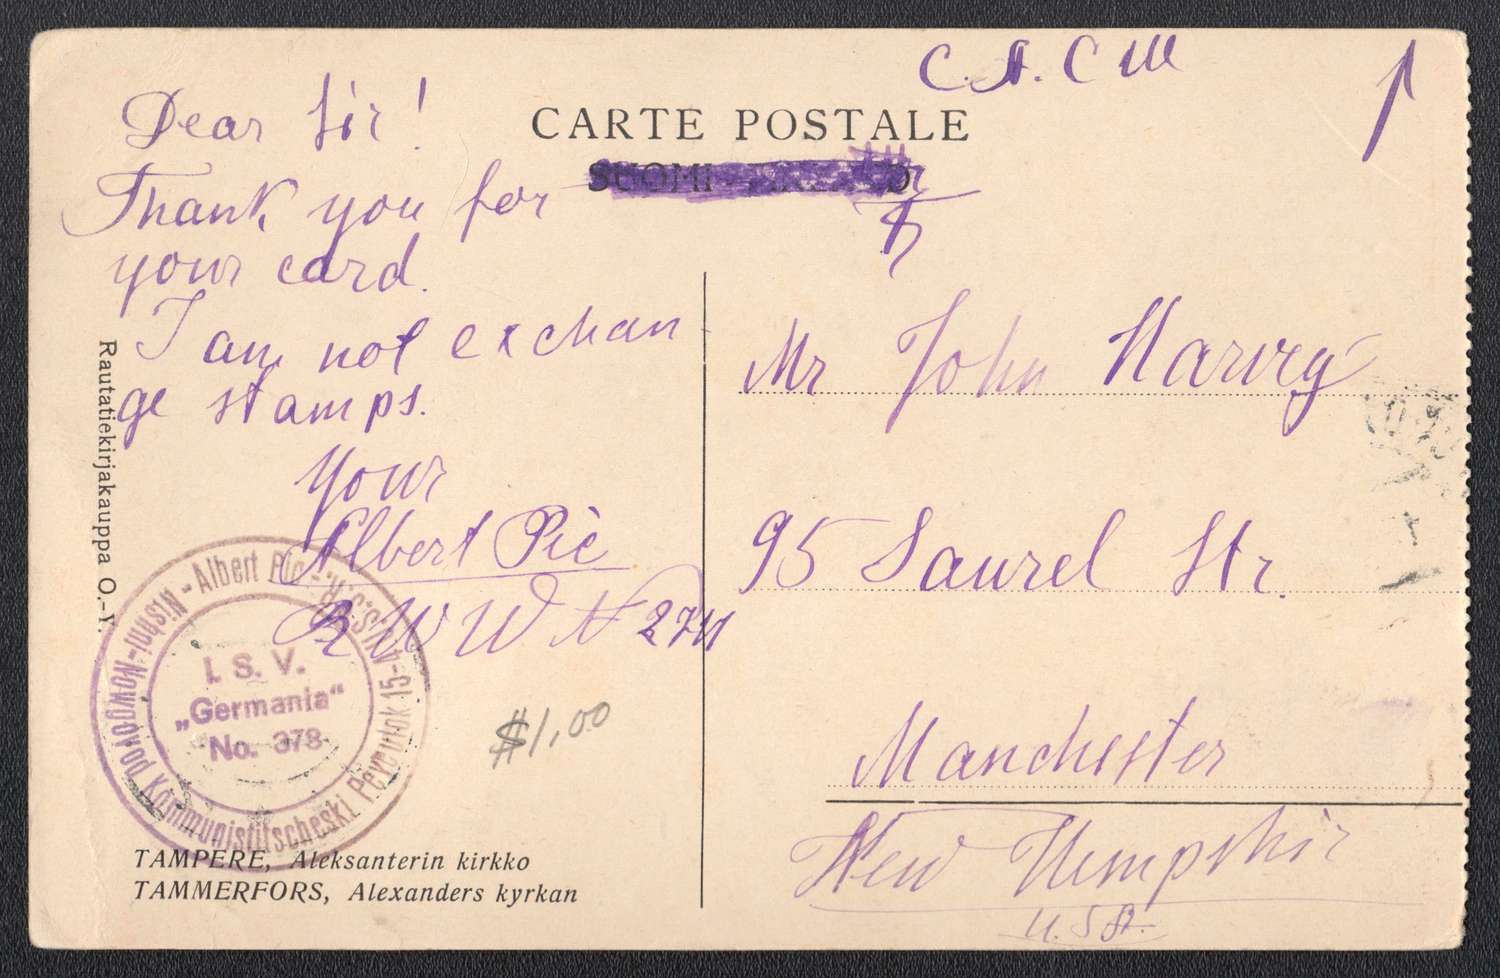 C.A.C Ш
CARTE POSTALE
SUOMI
Dear Sir!
Thank you for
your card.
I am not exchan
ge stamps.
Your
Albert Pic
W W N 2741
Mr John Harvey
95 Laurel Str.
Manchester
New Hempshir
U.S.A.
$1,00
Rautatiekirjakauppa O.-Y.
Nishni-Nowgorod Kommunistitscheski Pereulok 15-
Albert Pic
I. S. V.
„Germania“
No. 378
TAMPERE, Aleksanterin kirkko
TAMMERFORS, Alexanders kyrkan